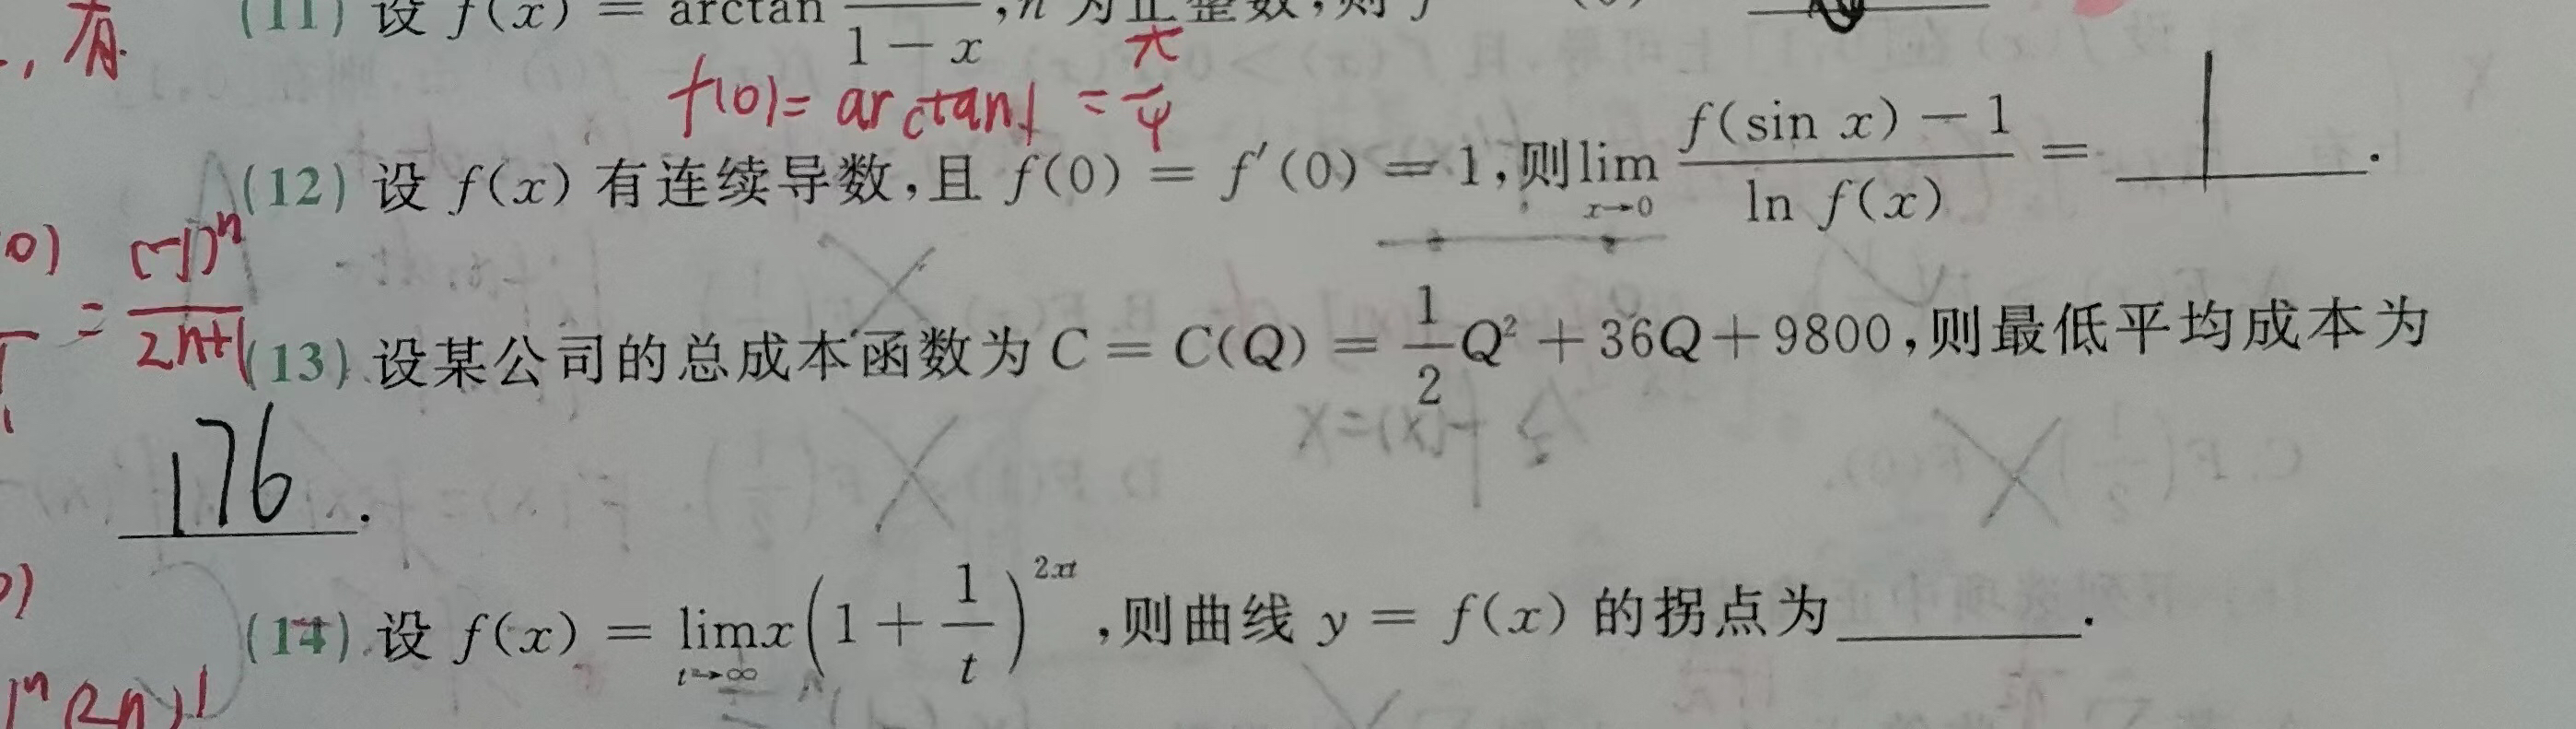 (11) 设 f(x) = arctan 1 - x , n 为正整数,则 f
有.
f(0) = arctan1 = π/4
(12) 设 f(x) 有连续导数,且 f(0) = f′(0) = 1,则 lim x→0 (f(sin x) - 1)/(ln f(x)) = 1 .
0) = (-1)ⁿ/(2n+1)
(13) 设某公司的总成本函数为 C = C(Q) = 1/2 Q² + 36Q + 9800,则最低平均成本为
176 .
(14) 设 f(x) = lim t→∞ x(1 + 1/t)^{2xt} ,则曲线 y = f(x) 的拐点为______.
(2n)!